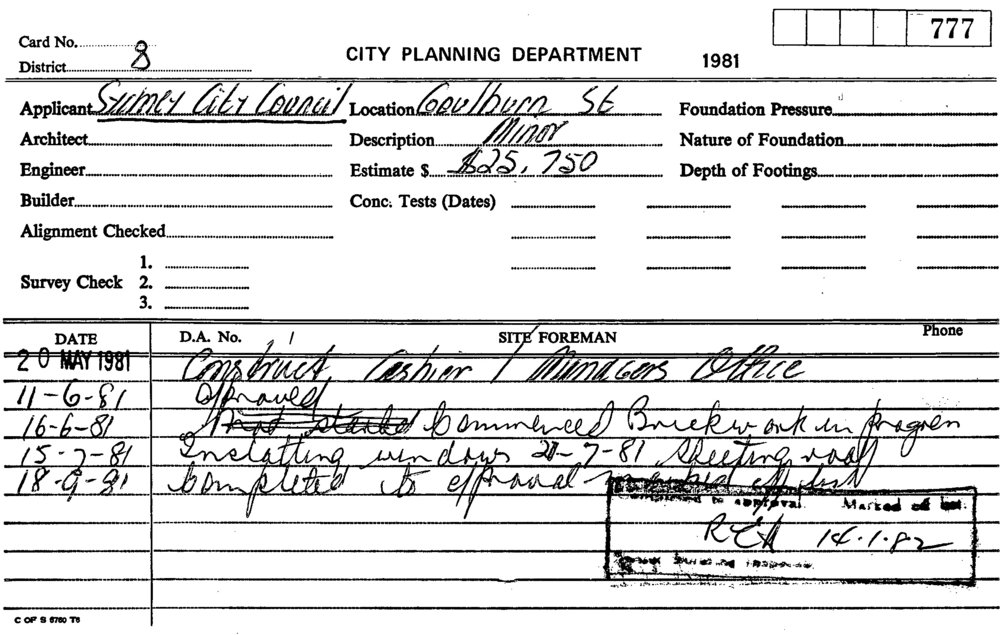 777
Card No. 8
District
CITY PLANNING DEPARTMENT 1981
Applicant Sydney City Council Location Goulburn St Foundation Pressure
Architect Description Minor Nature of Foundation
Engineer Estimate $ $25,750 Depth of Footings
Builder Conc. Tests (Dates)
Alignment Checked
1.
Survey Check 2.
3.
DATE D.A. No. SITE FOREMAN Phone
20 MAY 1981 Construct Cashier / Managers Office
11-6-81 Approved
16-6-81 Not started Commenced Brickwork in progress
15-7-81 Installing windows 21-7-81 Sheeting roof
18-9-81 Completed to approval marked off list
Completed to approval. Marked off list.
14.1.82
C OF S 6760 T6